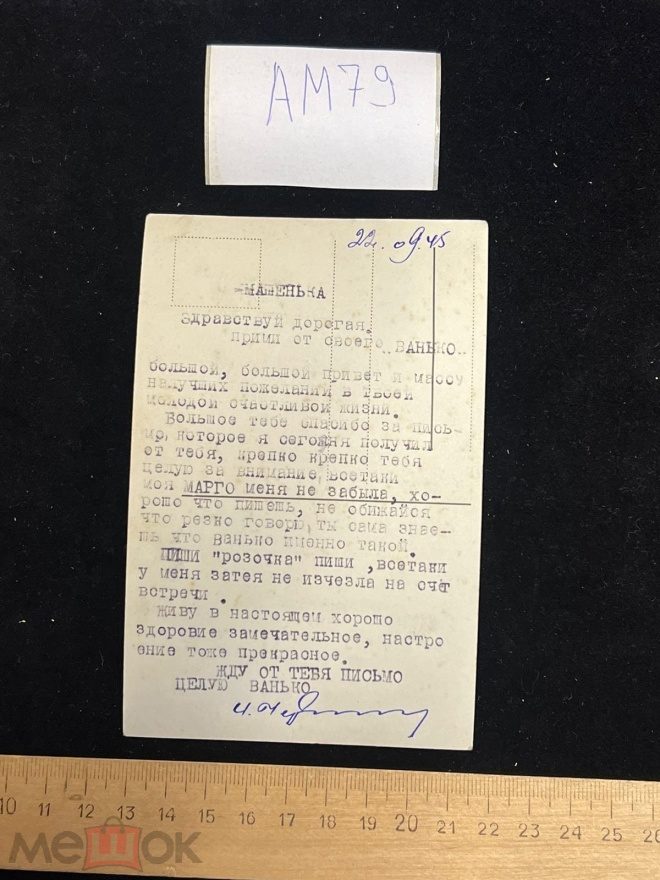 АМ79
22. 09.45
-МАШЕНЬКА
Здравствуй дорогая.
прими от своего „ВАНЬКО„
большой, большой привет и массу
налучших пожеланий в твоей
молодой счастливой жизни.
Большое тебе спасибо за пись-
мо, которое я сегодня получил
от тебя, крепко крепко тебя
целую за внимание, всетаки
моя МАРГО меня не забыла, хо-
рошо что пишешь, не обижайся
что резко говорю, ты сама знае-
шь что ванько именно такой.
ПИШИ "розочка" пиши ,всетаки
у меня затея не изчезла на счет
встречи .
живу в настоящем хорошо
здоровие замечательное, настро
ение тоже прекрасное.
ЖДУ ОТ ТЕБЯ ПИСЬМО
ЦЕЛУЮ ВАНЬКО
10 11 12 13 14 15 16 17 18 19 20 21 22 23 24 25 26
мешок